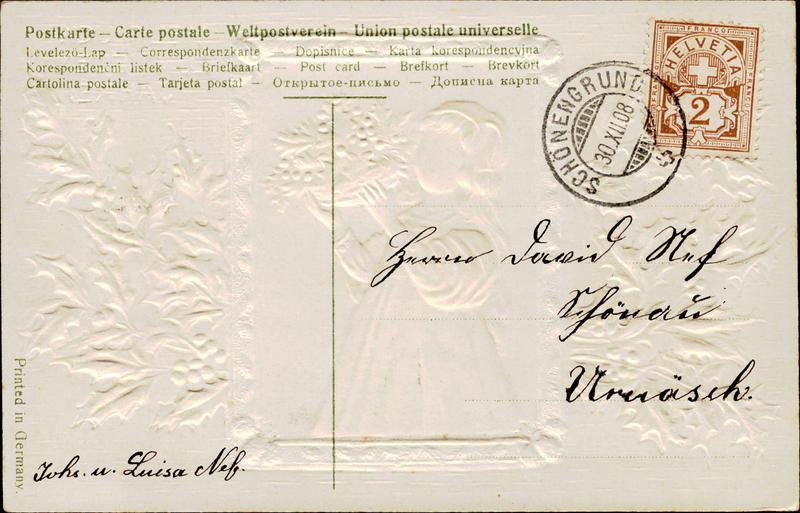 Postkarte – Carte postale – Weltpostverein – Union postale universelle
Levelező-Lap — Correspondenzkarte — Dopisnice — Karta korespondencyjna
Korespondenční listek — Briefkaart — Post card — Brefkort — Brevkort
Cartolina postale — Tarjeta postal — Открытое-письмо — Дописна карта
FRANCO
HELVETIA
2
SCHÖNENGRUND
30.XII.08
Herrn David Nef
Schönau
Urnäsch.
Johs. u. Luisa Nef.
Printed in Germany.